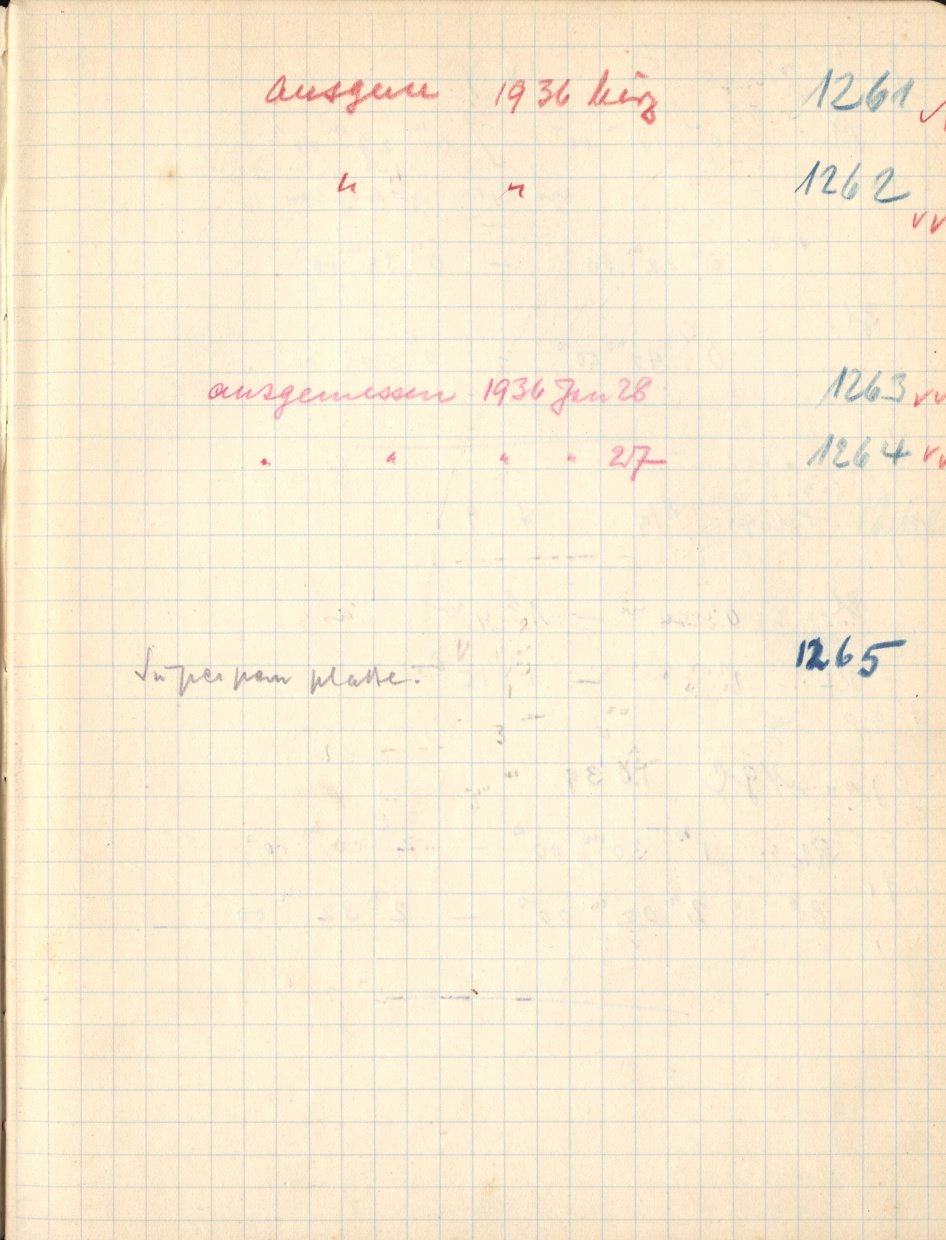 ausgem 1936 März 1261 √
" " 1262 √√
ausgemessen 1936 Jan 28 1263 √√
" " " " 27 1264 √√
1265
Superpan platte.